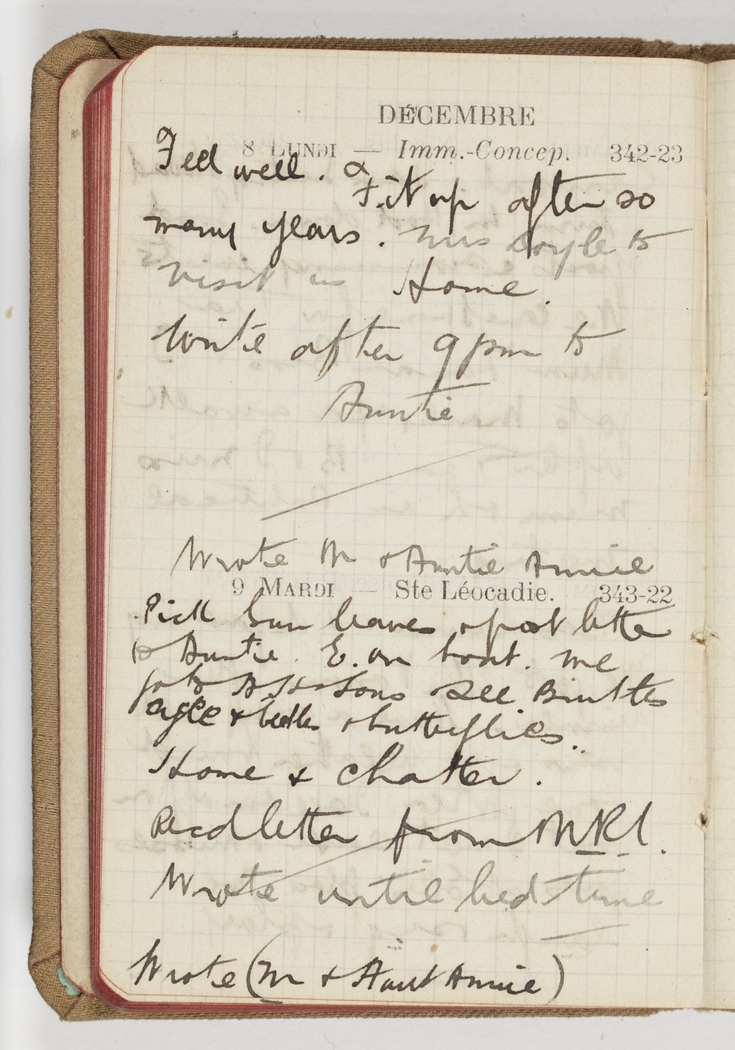 DÉCEMBRE
8 LUNDI — Imm.-Concep. 342-23
Fed well. &
Fit up after so
many years. Mrs Coyle to
visit us Home.
Write after 9pm to
Auntie
Wrote M & Auntie Annie
9 MARDI — Ste Léocadie. 343-22
Pick Gum leaves & post letter
to Auntie. E. on boat. me
go to &Sons see Beetles
& beetles & butterflies.
Home & chatter.
Recd letter from MRI.
Wrote until bedtime
Wrote (M & Aunt Annie)